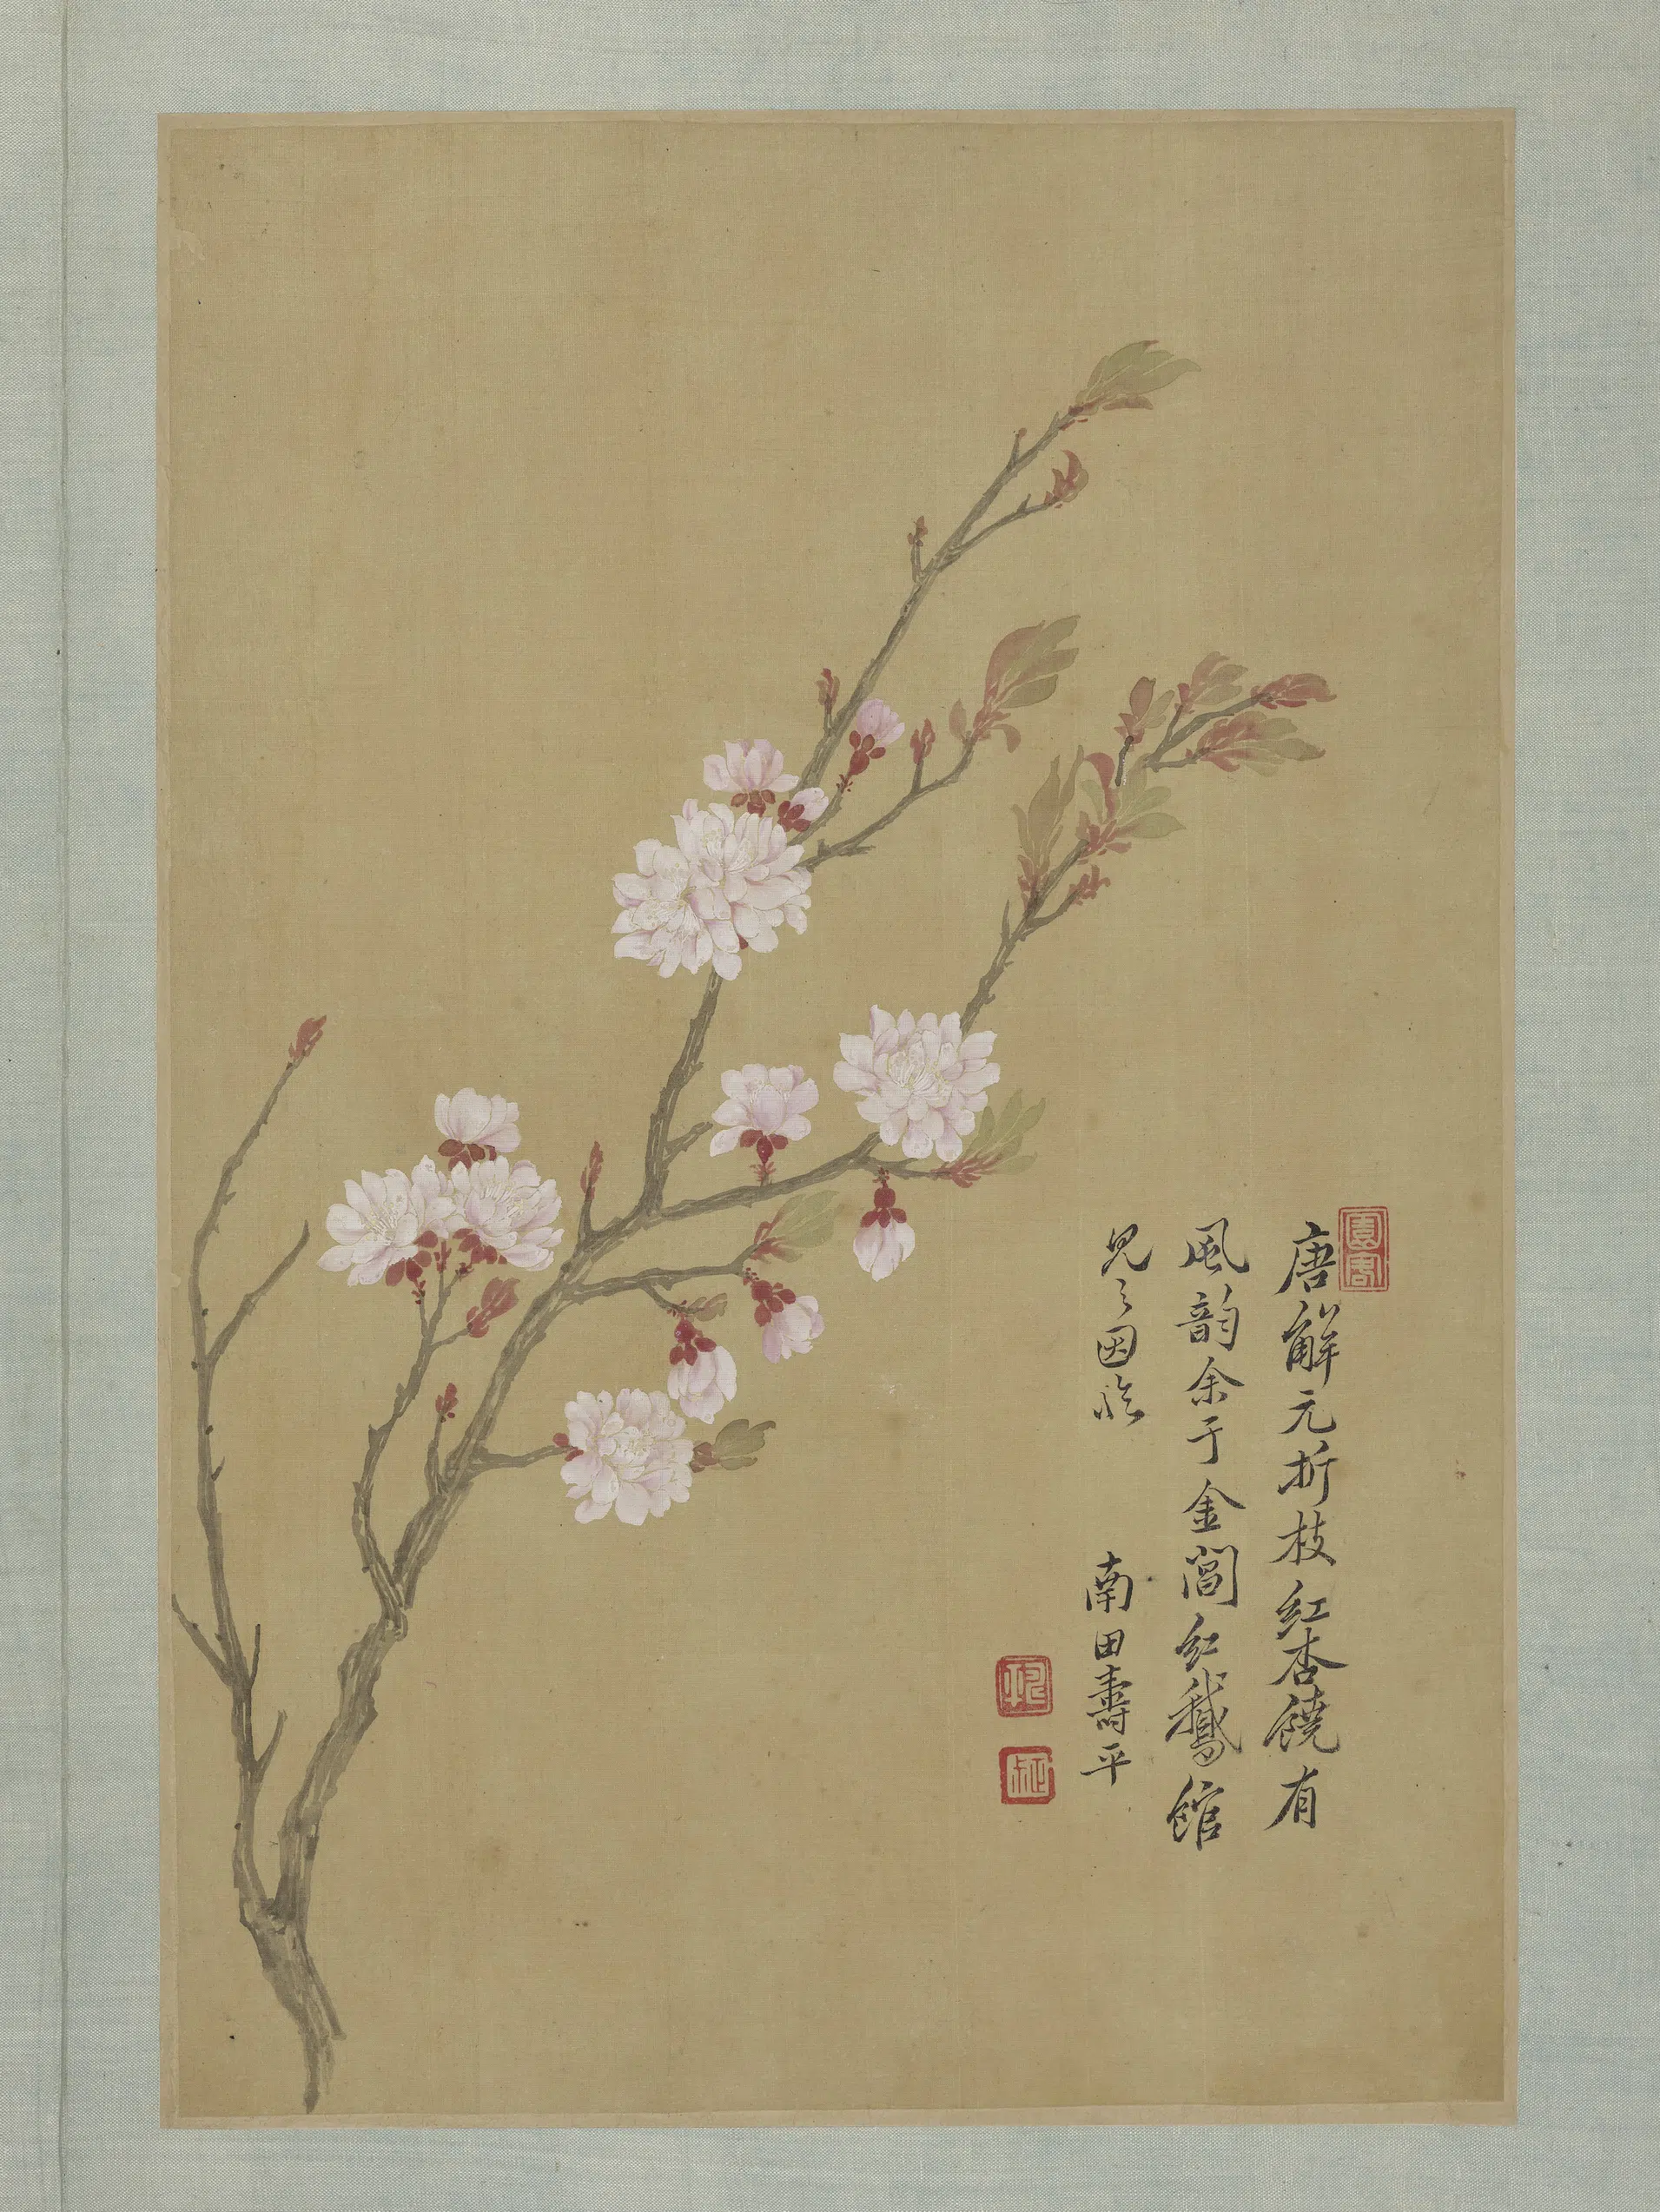 園客
唐解元折枝紅杏饒有
風韵余于金閶紅鵝館
見之因臨
南田壽平